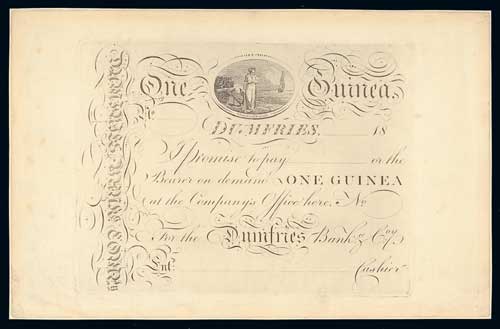 One Guinea
No
DUMFRIES, 18
I promise to pay or the
Bearer on demand ONE GUINEA
at the Company's Office here. No
For the Dumfries Bankg. Coy.
Ent. Cashier